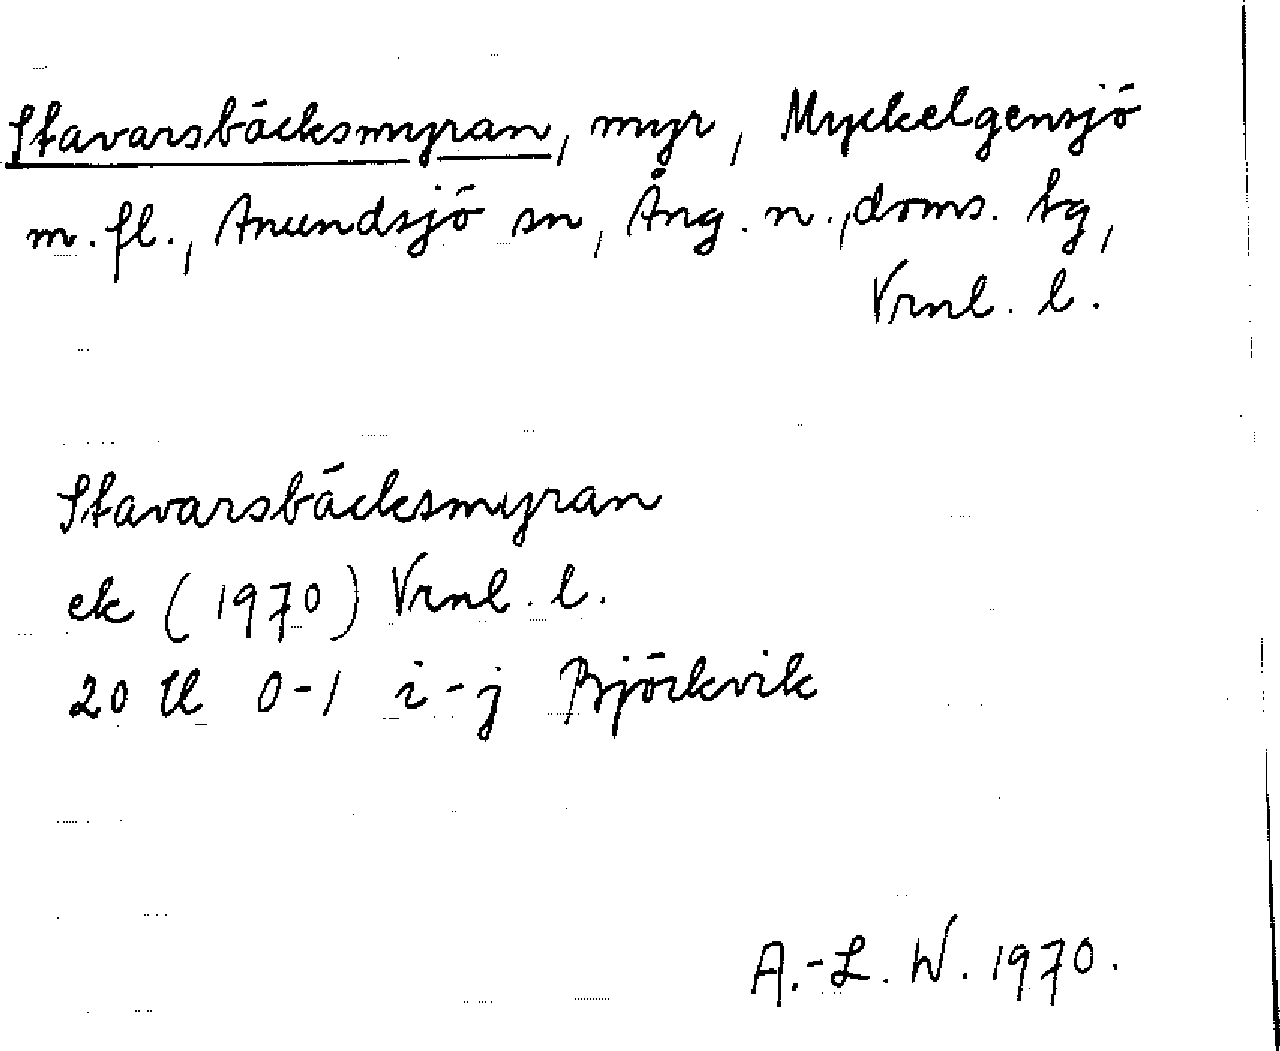 Stavarsbäcksmyran, myr, Myckelgensjö
m. fl., Anundsjö sn, Ång. n., doms. tg,
Vrnl. l.
Stavarsbäcksmyran
ek (1970) Vrnl. l.
20 H 0-1 i-j Björkvik
A.-L. W. 1970.